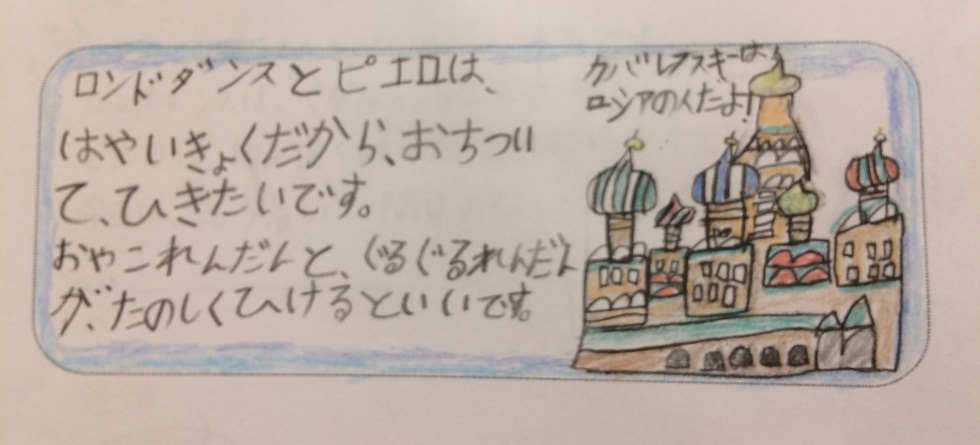 ロンドダンスとピエロは、
はやいきょくだから、おちつい
て、ひきたいです。
おやこれんだんと、ぐるぐるれんだん
が、たのしくひけるといいです。
カバレフスキーは、
ロシアの人だよ!